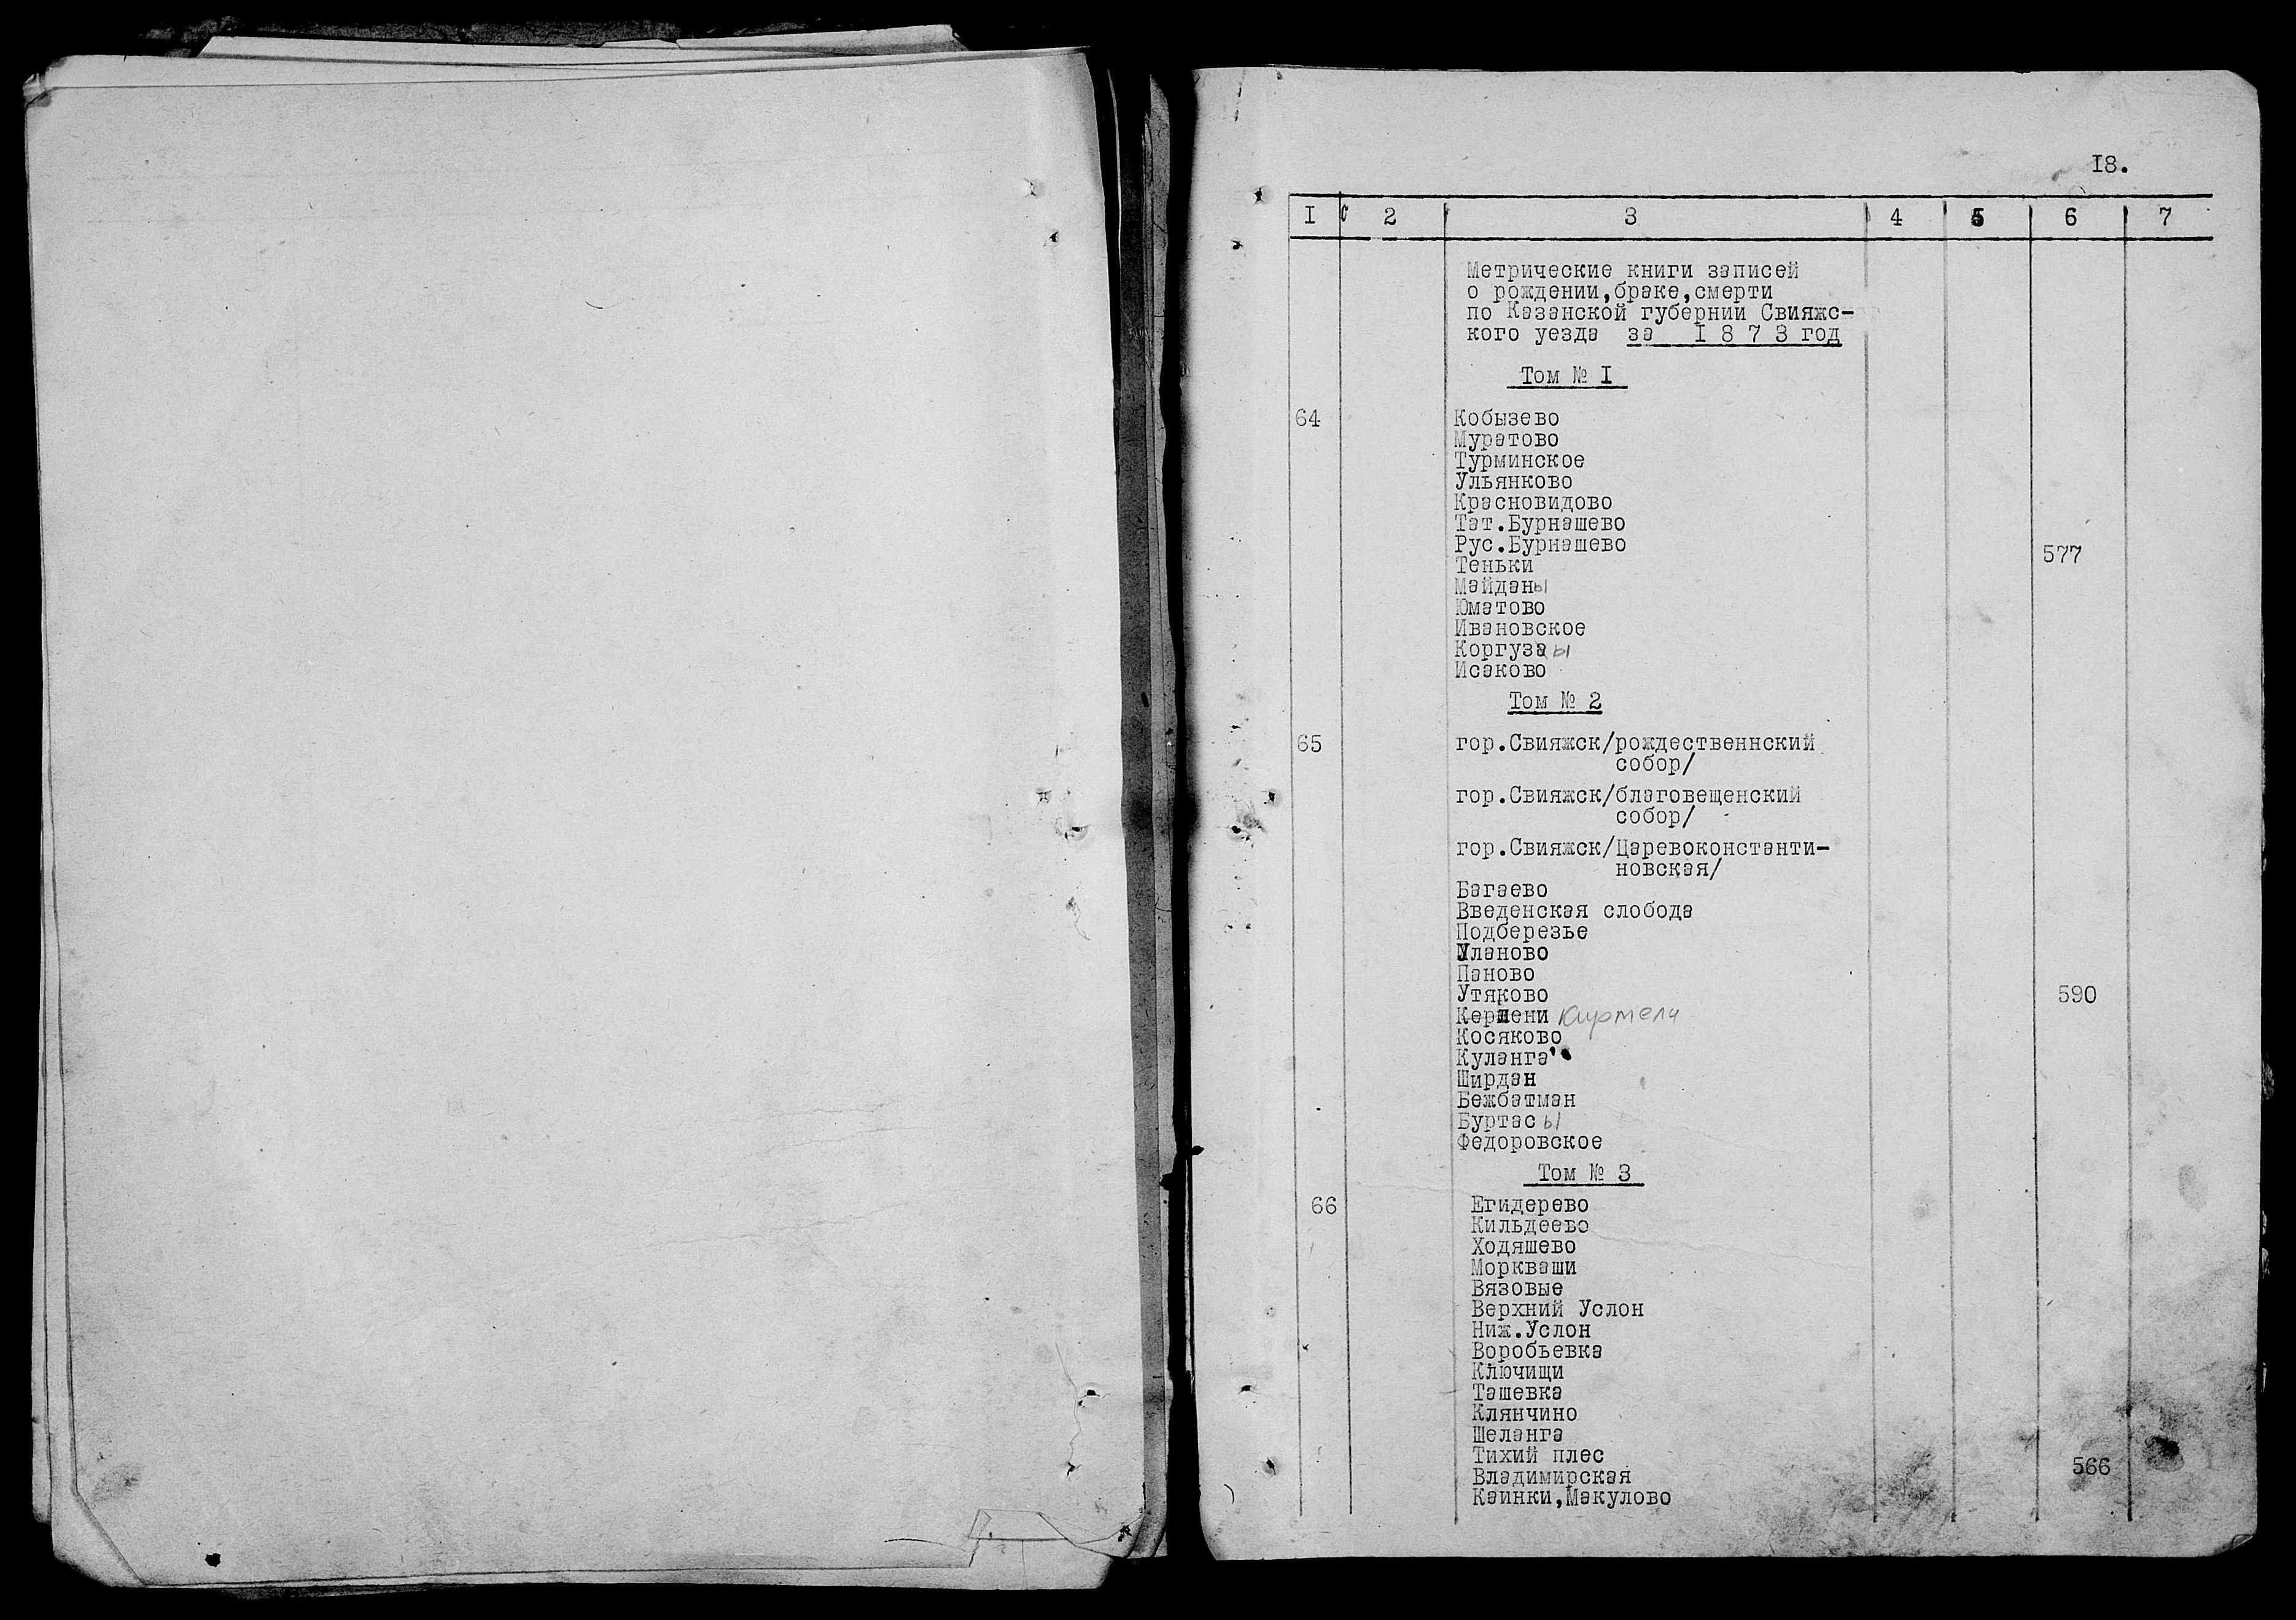 I8.
I 2 3 4 5 6 7
Метрические книги записей
о рождении,браке,смерти
по Казанской губернии Свияжс-
кого уезда за I 8 7 3 год
Том № I
64 Кобызево
Муратово
Турминское
Ульянково
Красновидово
Тат.Бурнашево
Рус.Бурнашево
577
Теньки
Майданы
Юматово
Ивановское
Коргузы
Исаково
Том № 2
65 гор.Свияжск/рождественнский
собор/
гор.Свияжск/благовещенский
собор/
гор.Свияжск/Царевоконстанти-
новская/
Багаево
Введенская слобода
Подберезье
Уланово
Паново
Утяково 590
Керлени Киртели
Косяково
Куланга
Ширдан
Бежбатман
Буртасы
Федоровское
Том № 3
66 Егидерево
Кильдеево
Ходяшево
Моркваши
Вязовые
Верхний Услон
Ниж.Услон
Воробьевка
Ключищи
Ташевка
Клянчино
Шеланга
Тихий плес
566
Владимирская
Каинки,Макулово